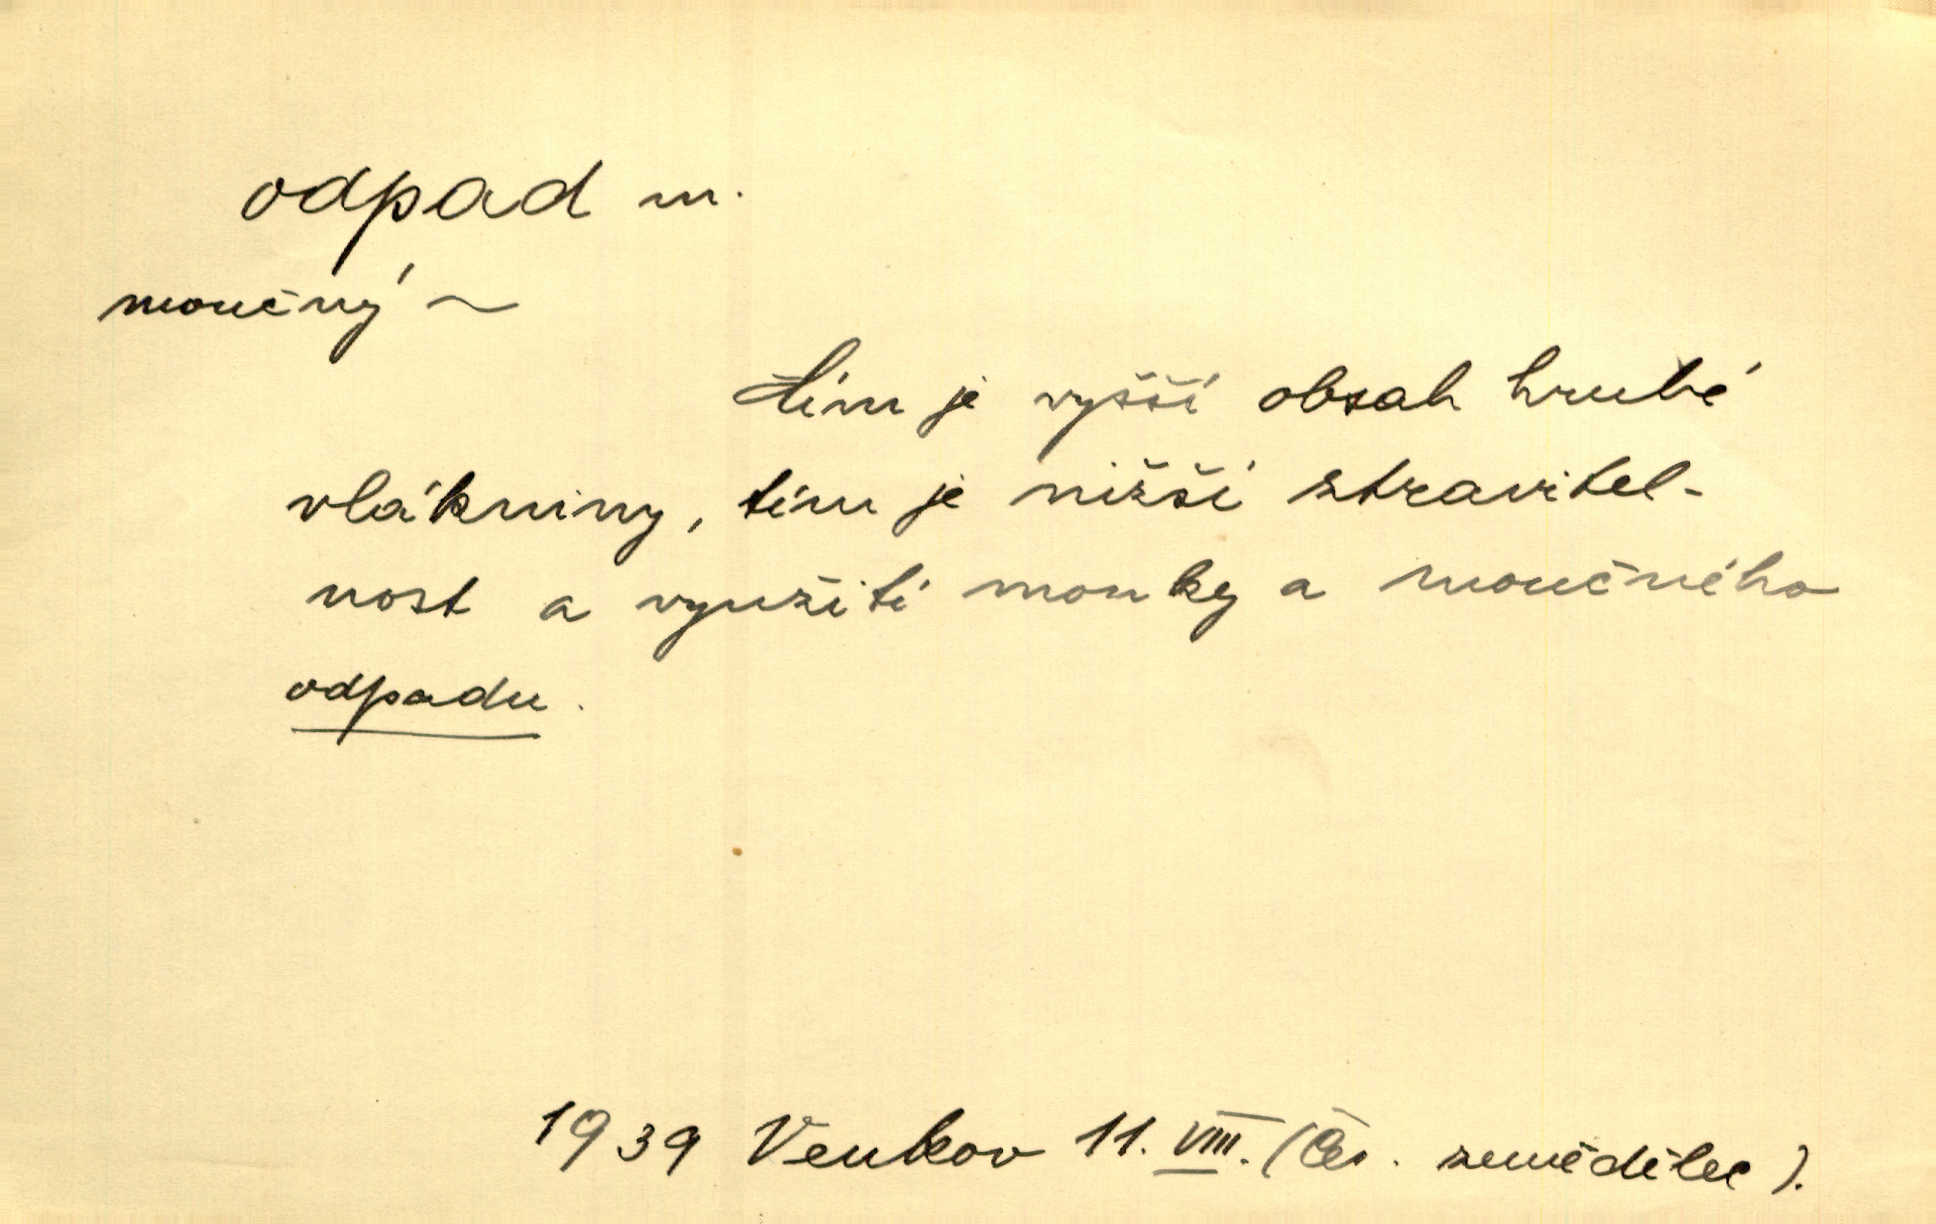 odpad m.
moučný ~
tím je vyšší obsah hrubé
vlákniny, tím je nižší stravitel-
nost a využití mouky a moučného
odpadu.
1939 Venkov 11. VIII. (Čes. zemědělec).